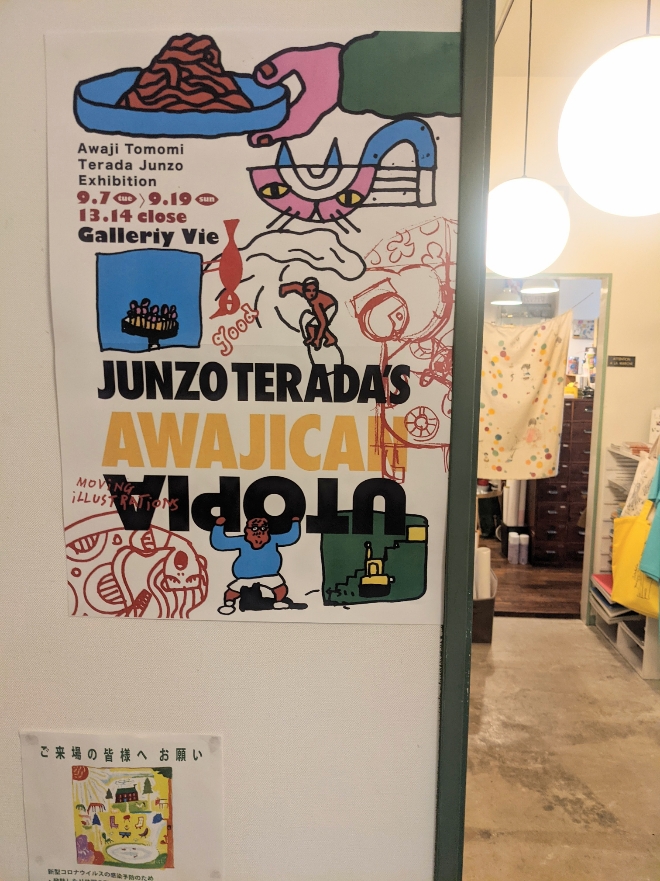 Awaji Tomomi
Terada Junzo
Exhibition
9.7 tue 〉 9.19 sun
13.14 close
Galleriy Vie
good
JUNZO TERADA'S
AWAJICAN
UTOPIA
MOVING
iLLUSTRATiONS
ご来場の皆様へ お願い
新型コロナウイルスの感染予防のため